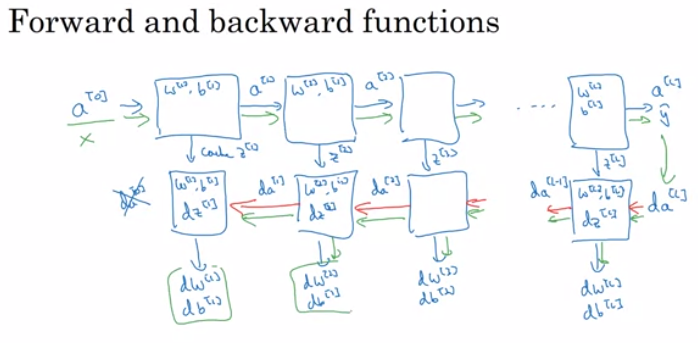 Forward and backward functions
a^[0]
x
w^[1], b^[1]
a^[1]
w^[2], b^[2]
a^[2]
....
w^[L]
b^[L]
a^[L]
ŷ
cache z^[1]
z^[2]
z^[3]
z^[L]
da^[0]
w^[1], b^[1]
dz^[1]
da^[1]
w^[2], b^[2]
dz^[2]
da^[2]
da^[L-1]
w^[L], b^[L]
dz^[L]
da^[L]
dw^[1]
db^[1]
dw^[2]
db^[2]
dw^[3]
db^[3]
dw^[L]
db^[L]